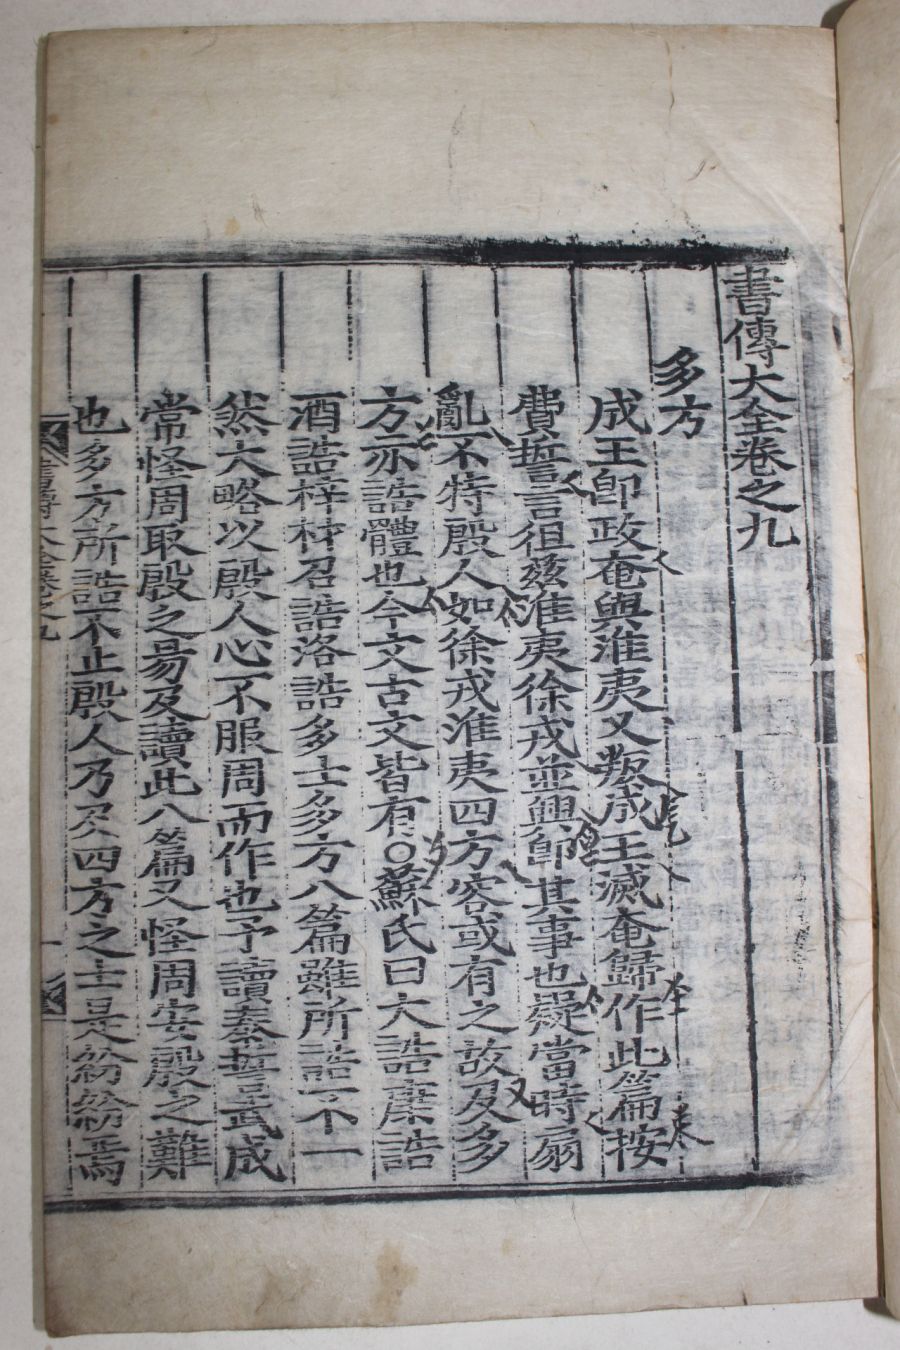 書傳大全卷之九
多方
成王卽政奄與淮夷又叛成王滅奄歸作此篇按
費誓言徂玆淮夷徐戎並興卽其事也疑當時扇
亂不特殷人如徐戎淮夷四方容或有之故及多
方亦誥體也今文古文皆有○蘇氏曰大誥康誥
酒誥梓材召誥洛誥多士多方八篇雖所誥不一
然大略以殷人心不服周而作也予讀泰誓武成
常怪周取殷之易及讀此八篇又怪周安殷之難
也多方所誥不止殷人乃及四方之士是紛紛焉
書傳大全卷之九
一